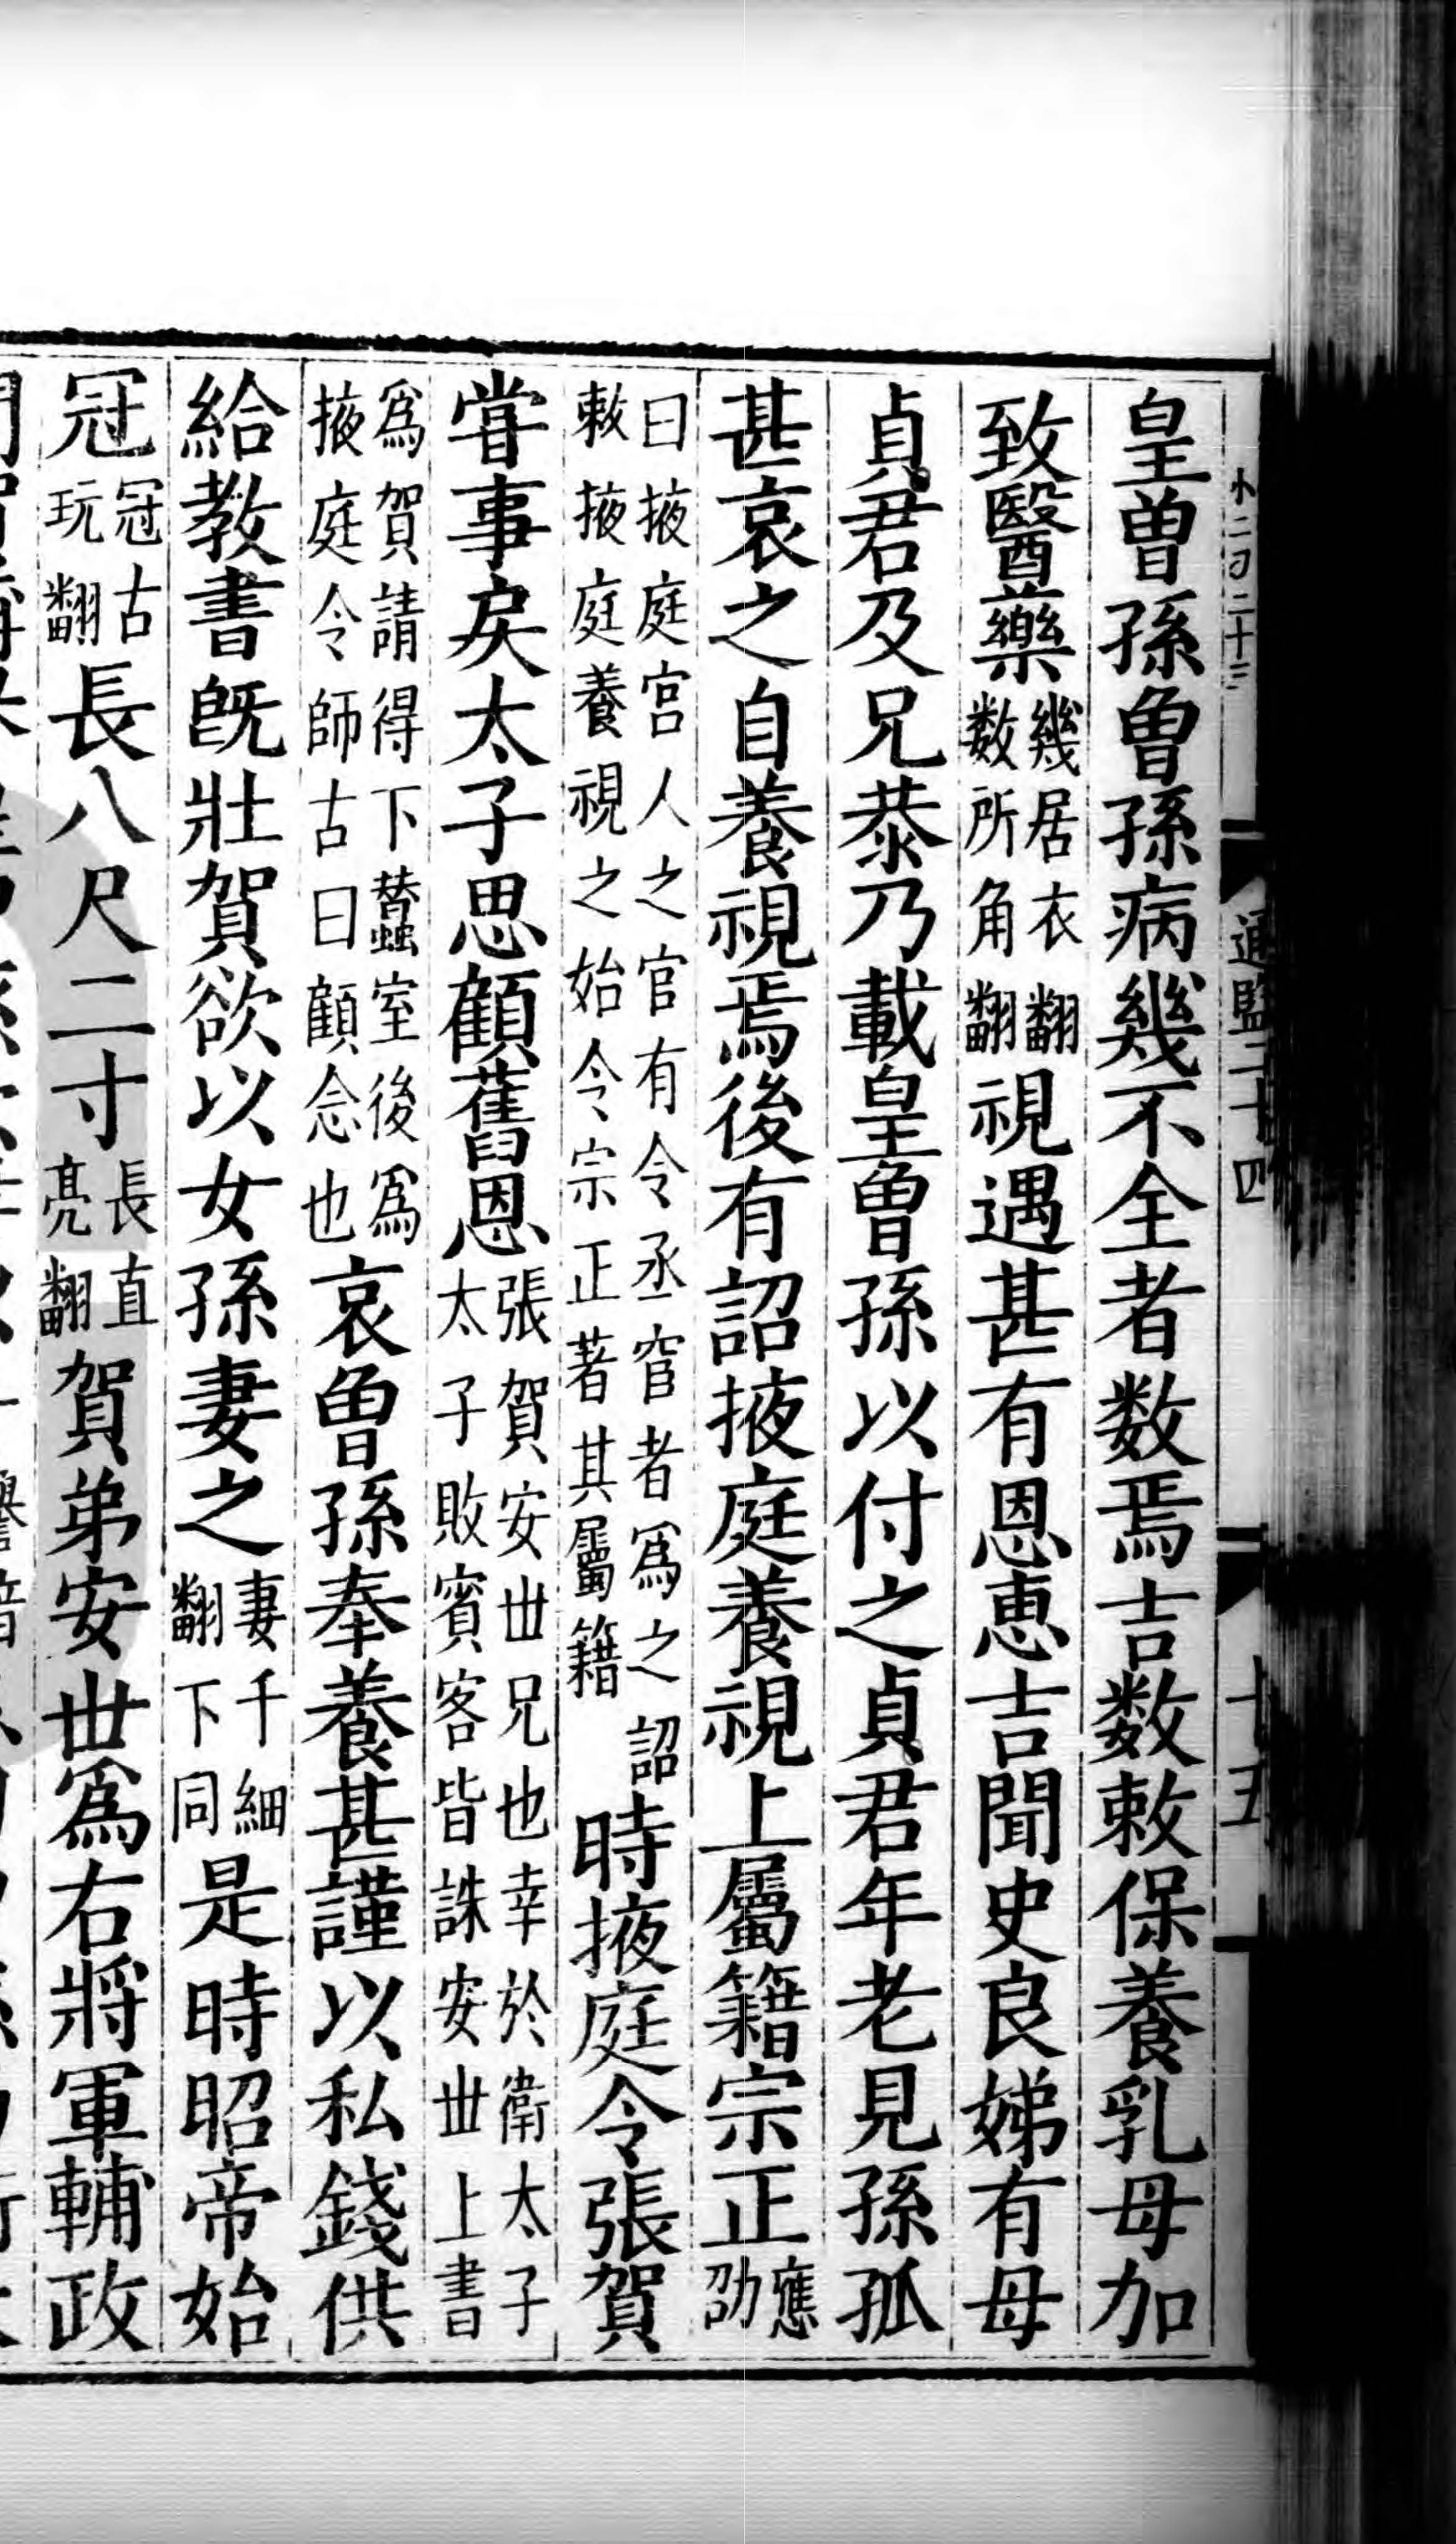 皇曾孫曾孫病幾不全者数焉吉数敕保養乳母加
致醫藥幾居衣翻数所角翻視遇甚有恩惠吉聞史良娣有母
貞君及兄恭乃載皇曾孫以付之貞君年老見孫孤
甚哀之自養視焉後有詔掖庭養視上屬籍宗正應劭
曰掖庭宫人之官有令丞宦者爲之詔敕掖庭養視之始令宗正著其屬籍時掖庭令張賀
甞事戾太子思顧舊恩張賀安丗兄也幸於衛太子太子敗賓客皆誅安丗上書
爲賀請得下蠶室後爲掖庭令師古曰顧念也哀曾孫奉養甚謹以私錢供
給教書既壯賀欲以女孫妻之妻千細翻下同是時昭帝始
冠冠古玩翻長八尺二寸長直亮翻賀弟安丗爲右將軍輔政
通鑑二十四
十五